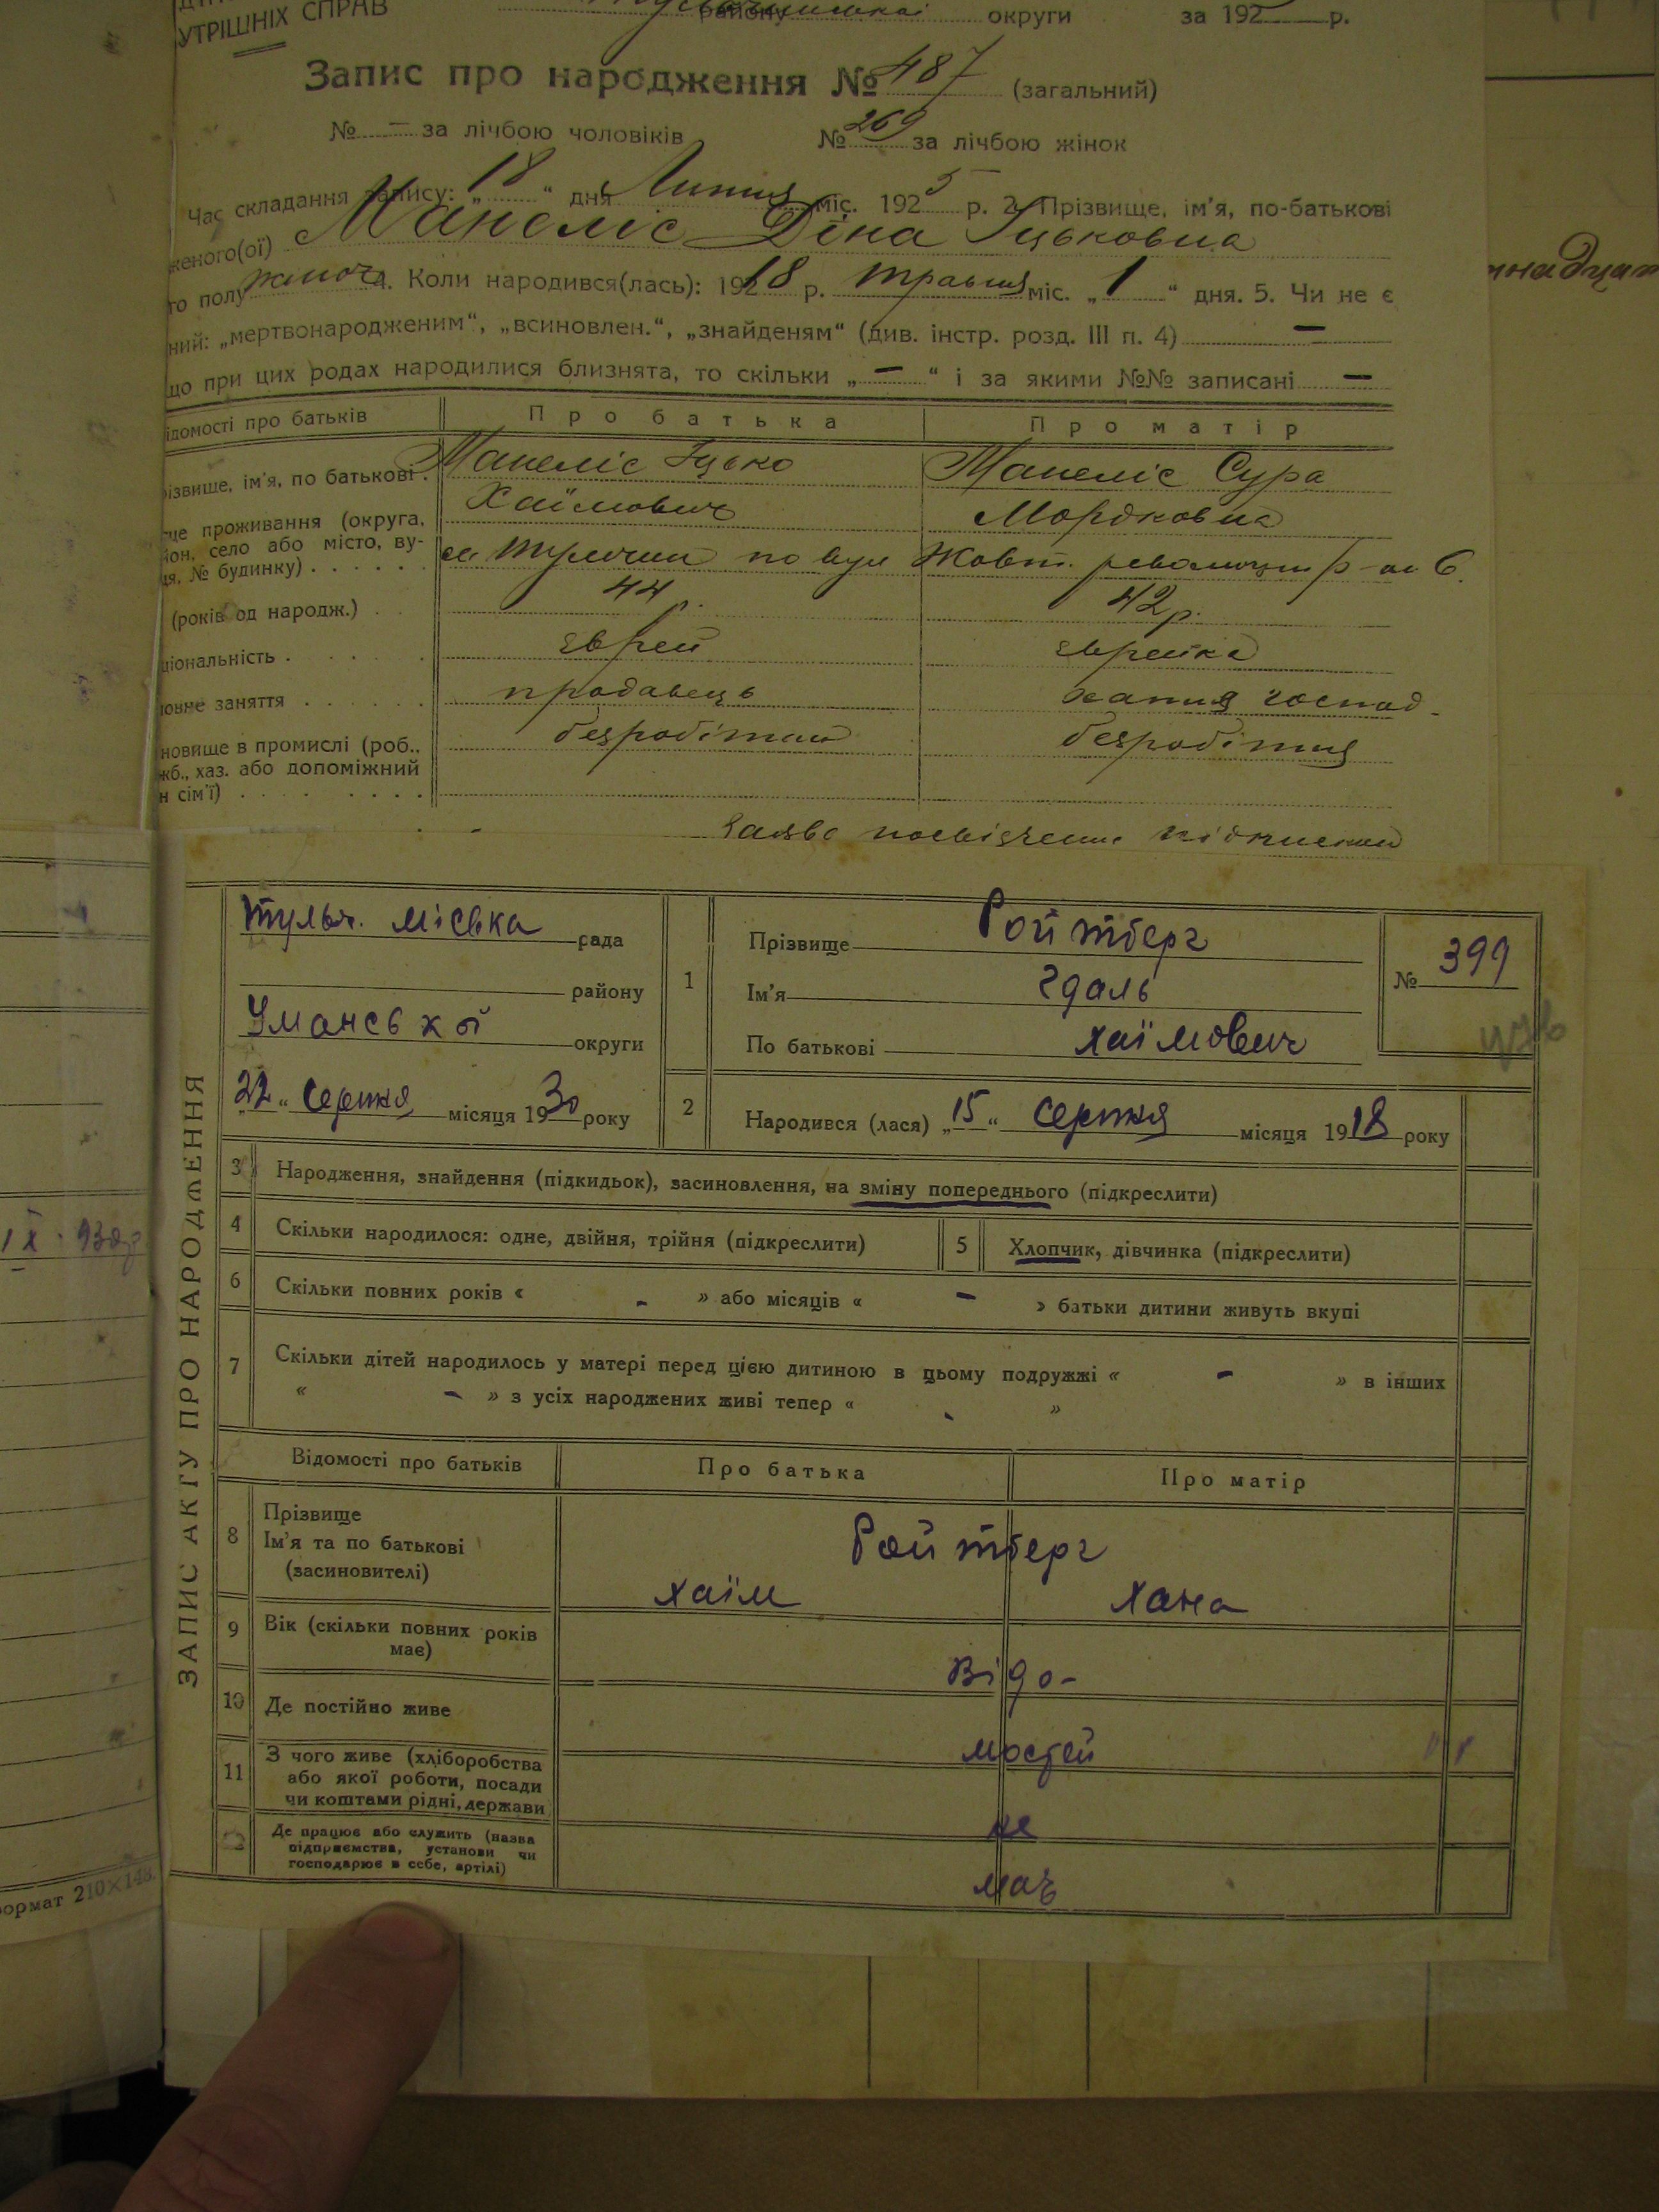 УТРІШНІХ СПРАВ
району округи за 192 р.
Запис про народження № 487 (загальний)
№ — за лічбою чоловіків № 269 за лічбою жінок
Час складання запису: „18“ дня Липня міс. 1925 р. 2. Прізвище, ім'я, по-батькові
женого(ої) Манеліс Діна Іцьковна
го полу жіноч. 4. Коли народився(лась): 1918 р. травня міс. „1“ дня. 5. Чи не є
ний: „мертвонародженим“, „всиновлен.“, „знайденям“ (див. інстр. розд. III п. 4) —
що при цих родах народилися близнята, то скільки „—“ і за якими №№ записані —
ідомості про батьків Про батька Про матір
різвище, ім'я, по батькові. Манеліс Іцько Манеліс Сура
Хаїмович Мордковна
це проживання (округа,
йон, село або місто, ву-
ця, № будинку) м. Тульчин по вул Жовт. революции 6.
(років од народж.) 44 р. 42 р.
ціональність еврей еврейка
новне заняття продавець хатня господ.
новище в промислі (роб., безробітний безробітня
жб., хаз. або допоміжний
н сім'ї)
Заява посвідчення підписки
Тульч. міська рада
району
Уманської округи
22 „ Серпня місяця 1930 року
1 Прізвище Ройтберг
Ім'я Гдаль
По батькові Хаїмович
№ 399
2 Народився (лася) „15“ серпня місяця 1918 року
ЗАПИС АКТУ ПРО НАРОДЖЕННЯ
3 Народження, знайдення (підкидьок), засиновлення, на зміну попереднього (підкреслити)
4 Скільки народилося: одне, двійня, трійня (підкреслити) 5 Хлопчик, дівчинка (підкреслити)
6 Скільки повних років « - » або місяців « - » батьки дитини живуть вкупі
7 Скільки дітей народилось у матері перед цією дитиною в цьому подружжі « - » в інших
« - » з усіх народжених живі тепер « - »
Відомості про батьків Про батька Про матір
8 Прізвище
Ім'я та по батькові
(засиновителі)
Ройтберг
Хаїм Хана
9 Вік (скільки повних років
має)
Відо-
10 Де постійно живе
мостей
11 З чого живе (хліборобства
або якої роботи, посади
чи коштами рідні, держави
не
Де працює або служить (назва
підприємства, установи чи
господарює в себе, артілі)
має
IX. 930р
формат 210×148.